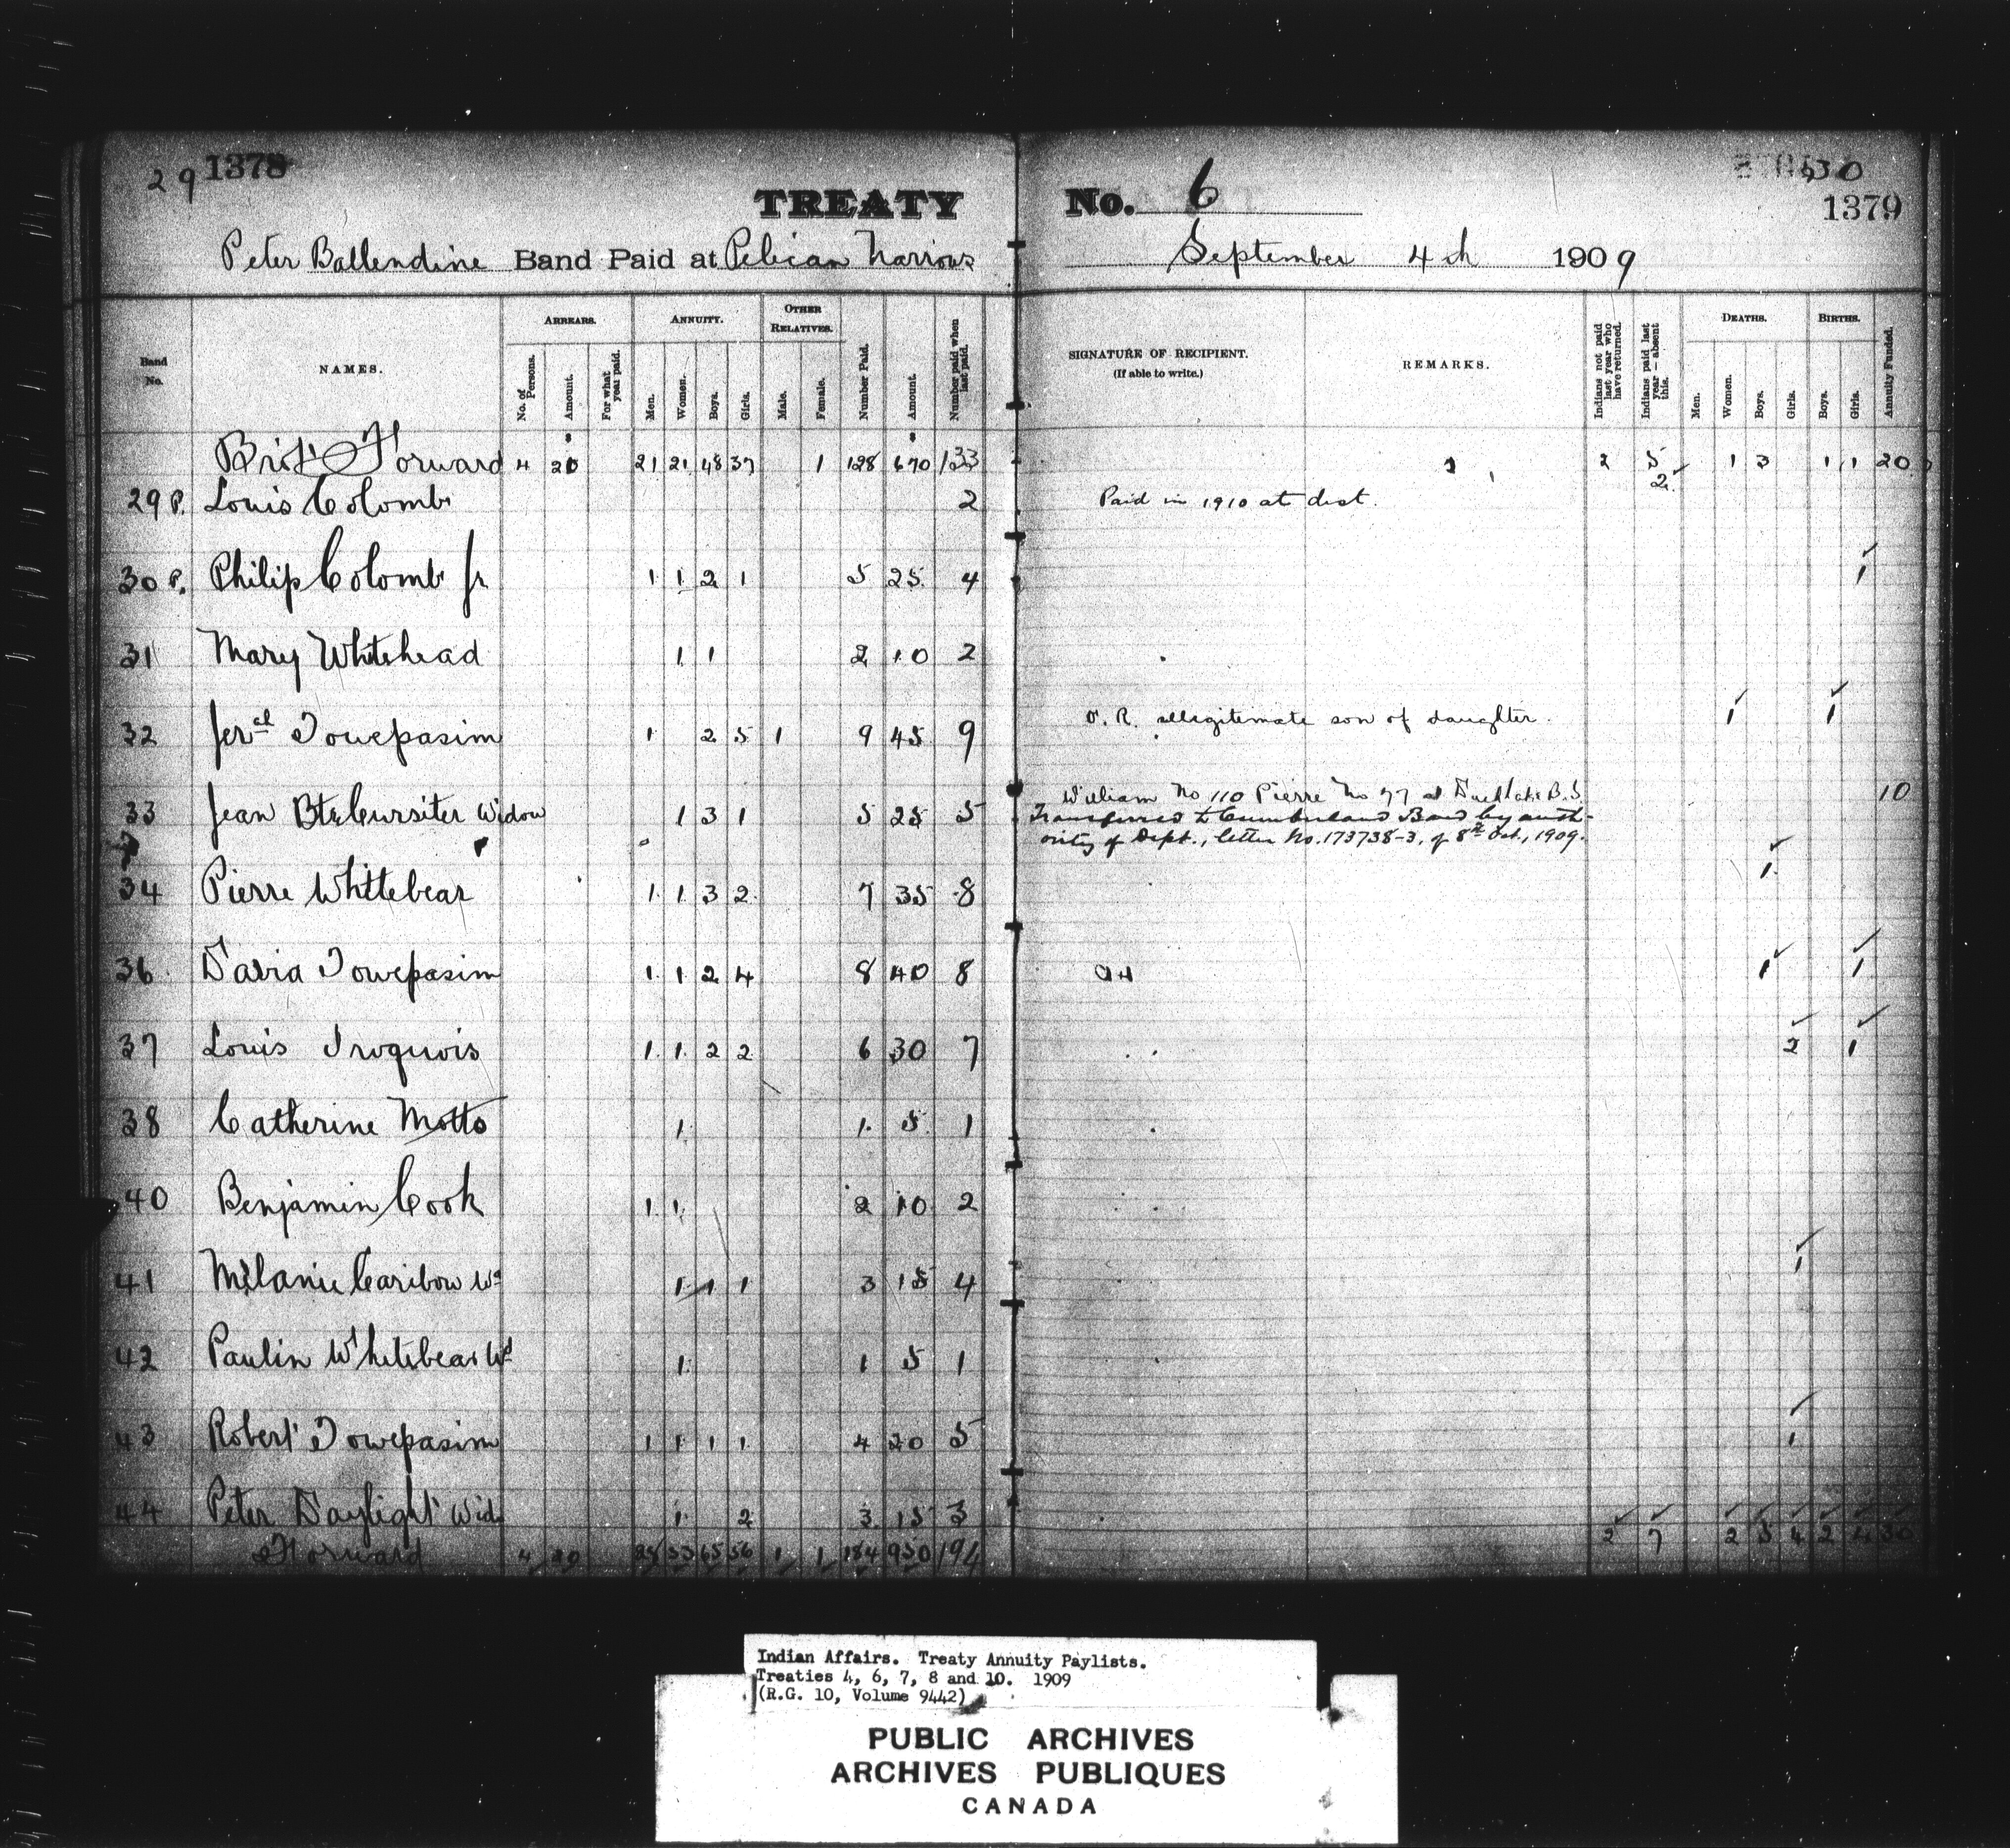 29 1378
TREATY No. 6
30
1379
Peter Ballendine Band Paid at Pelican Narrows September 4th 1909
Band No. NAMES. ARREARS. No. of Persons. Amount. For what year paid. ANNUITY. Men. Women. Boys. Girls. OTHER RELATIVES. Male. Female. Number Paid. Amount. Number paid when last paid. SIGNATURE OF RECIPIENT. (If able to write.) REMARKS. Indians not paid last year who have returned. Indians paid last year — absent this. DEATHS. Men. Women. Boys. Girls. BIRTHS. Boys. Girls. Annuity Funded.
Brot Forward 4 20 21 21 48 37 1 128 670 133 2 5 1 3 1 1 20
29 P. Louis Colomb 2 Paid in 1910 at dist. 2
30 P. Philip Colomb Jr 1 1 2 1 5 25 4 1
31 Mary Whitehead 1 1 2 10 2
32 Jer Towepasim 1 2 5 1 9 45 9 O. R. illegitimate son of daughter. 1 1
33 Jean Bte Cursiter Widow 1 3 1 5 25 5 William No 110 Pierre No 77 at Duck Lake B.S 10
Transferred to Cumberland Band by auth-
ority of Dept., letter No. 173738-3, of 8th Oct., 1909.
34 Pierre Whitebear 1 1 3 2 7 35 8 1
36 David Towepasim 1 1 2 4 8 40 8 1 1
37 Louis Iroquois 1 1 2 2 6 30 7 2 1
38 Catherine Motto 1 1 5 1
40 Benjamin Cook 1 1 2 10 2
41 Melanie Caribou Wd 1 1 1 3 15 4 1
42 Paulin Whitebear Wd 1 1 5 1
43 Robert Towepasim 1 1 1 1 4 20 5 1
44 Peter Daylight Wid 1 2 3 15 3
Forward 4 20 28 33 65 56 1 1 184 950 194 2 7 2 5 4 2 4 30
Indian Affairs. Treaty Annuity Paylists.
Treaties 4, 6, 7, 8 and 10. 1909
(R.G. 10, Volume 9442)
PUBLIC ARCHIVES
ARCHIVES PUBLIQUES
CANADA